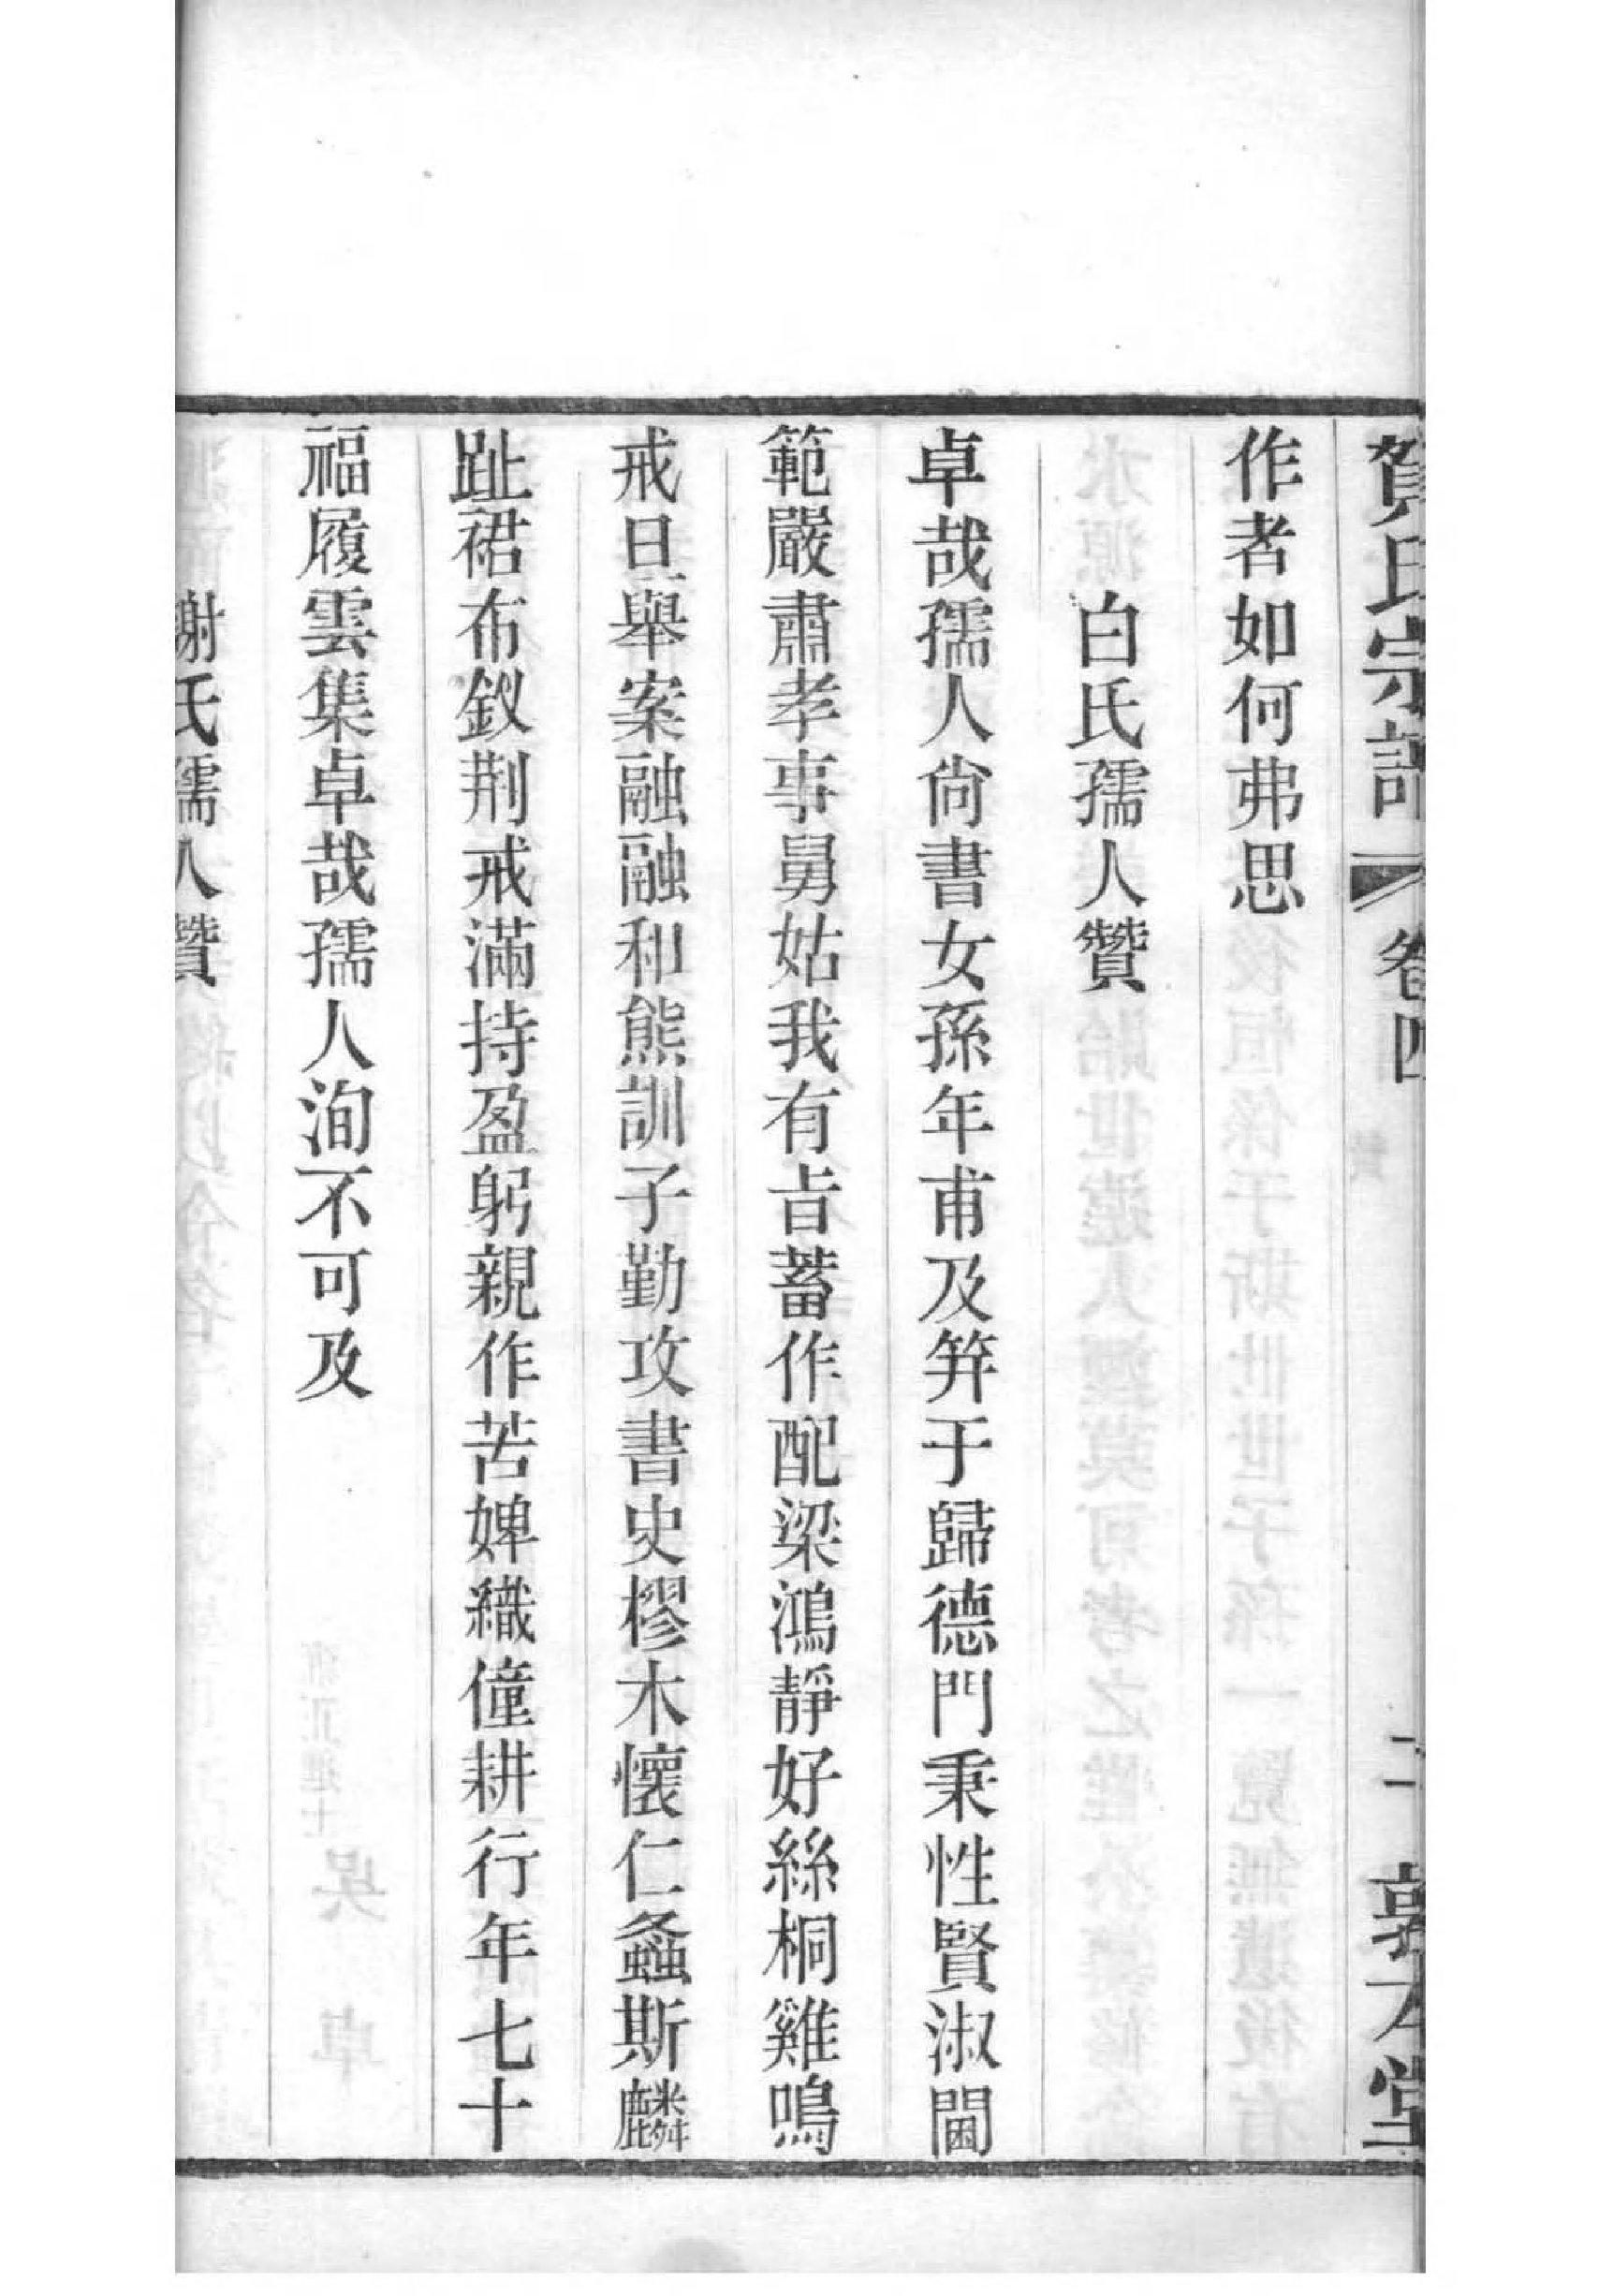 賀氏宗譜 卷四 二 敦本堂
作者如何弗思
白氏孺人贊
卓哉孺人尙書女孫年甫及笄于歸德門秉性賢淑閫
範嚴肅孝事舅姑我有旨蓄作配梁鴻靜好絲桐雞鳴
戒旦舉案融融和熊訓子勤攻書史樛木懷仁螽斯麟
趾裙布釵荆戒滿持盈躬親作苦婢織僮耕行年七十
福履雲集卓哉孺人洵不可及
謝氏孺人贊